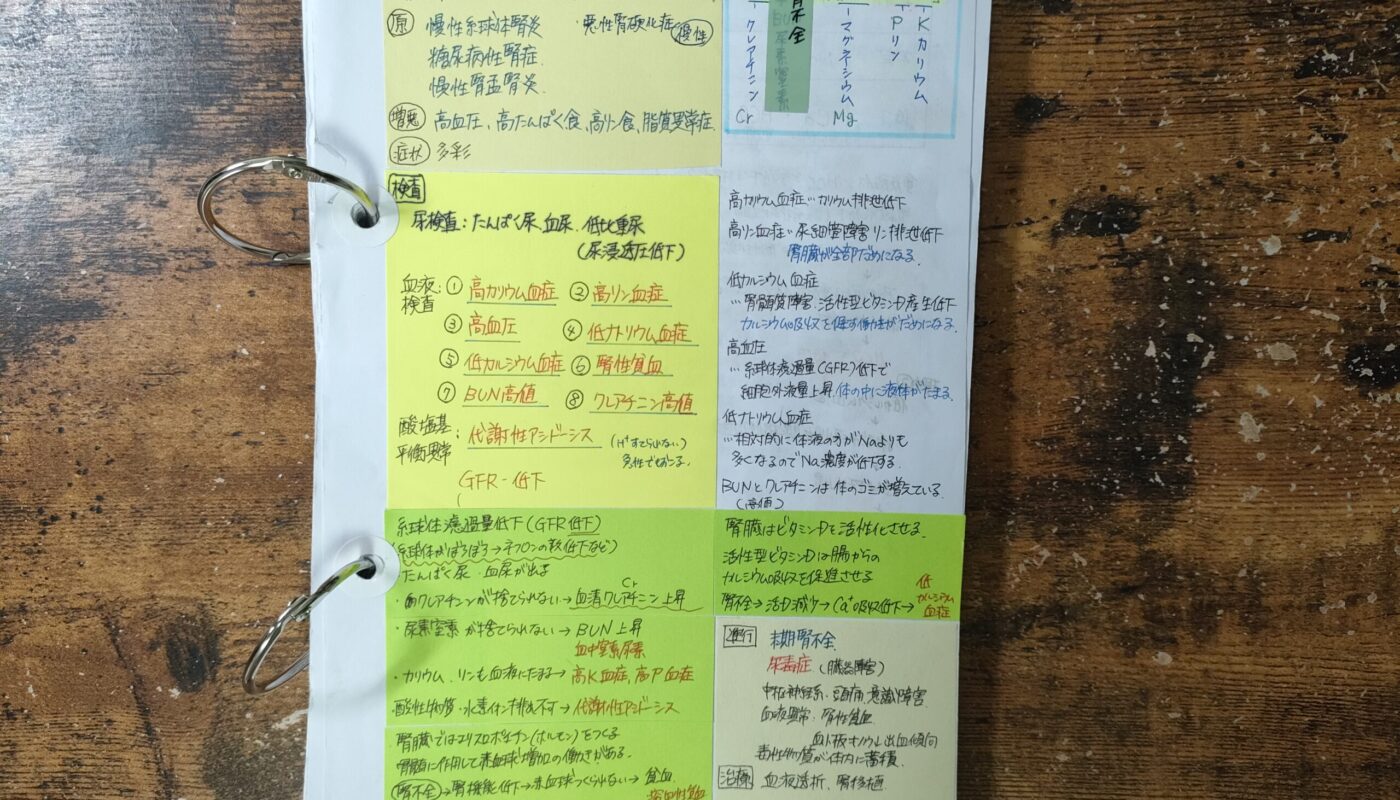 原 慢性糸球体腎炎 ・悪性腎硬化症 慢性
糖尿病性腎症
慢性腎盂腎炎
増悪 高血圧、高たんぱく食、高リン食、脂質異常症
症状 多彩
検査
尿検査：たんぱく尿 血尿 低比重尿
(尿浸透圧低下)
血液検査：① 高カリウム血症 ② 高リン血症
③ 高血圧 ④ 低ナトリウム血症
⑤ 低カルシウム血症 ⑥ 腎性貧血
⑦ BUN高値 ⑧ クレアチニン高値
酸塩基平衡異常：代謝性アシドーシス (H⁺すてられない)
急性でもおこる。
GFR-低下
糸球体濾過量低下(GFR低下)
(糸球体がぼろぼろ→ネフロンの数低下など)
・たんぱく尿・血尿が出ま
クレアチニンが捨てられない→血清クレアチニン上昇
Cr
・尿素窒素が捨てられない→BUN上昇
血中窒素尿素
・カリウム、リンも血液にたまる→高K血症、高P血症
・酸性物質・水素イオン排泄不す→代謝性アシドーシス
腎臓ではエリスロポエチン(ホルモン)をつくる
骨髄に作用して赤血球増加の働きがある。
腎不全→腎機能低下→赤血球つくられない→貧血
腎性貧血
クレアチニン
Cr
BUN 尿素窒素
腎不全
マグネシウム
Mg
P リン
K カリウム
高カリウム血症…カリウム排泄低下
高リン血症…尿細管障害 リン排泄低下
腎臓が全部だめになる。
低カルシウム血症
…腎髄質障害 活性型ビタミンD産生低下
カルシウム吸収を促す働きがだめになる。
高血圧
…糸球体濾過量(GFR)低下で
細胞外液量上昇 体の中に液体がたまる。
低ナトリウム血症
…相対的に体液の方がNaよりも
多くなるのでNa濃度が低下する。
BUNとクレアチニンは体のゴミが増えている。
(高値)
腎臓はビタミンDを活性化させる。
活性型ビタミンDは腸からの
カルシウム吸収を促進させる
腎不全→活D減少→Ca⁺吸収低下→低カルシウム血症
進行 末期腎不全
尿毒症 (臓器障害)
中枢神経系・頭痛、意識障害
血液異常・腎性貧血
血小板オノウル出血傾向
毒性物質が体内に蓄積。
治療 血液透析、腎移植